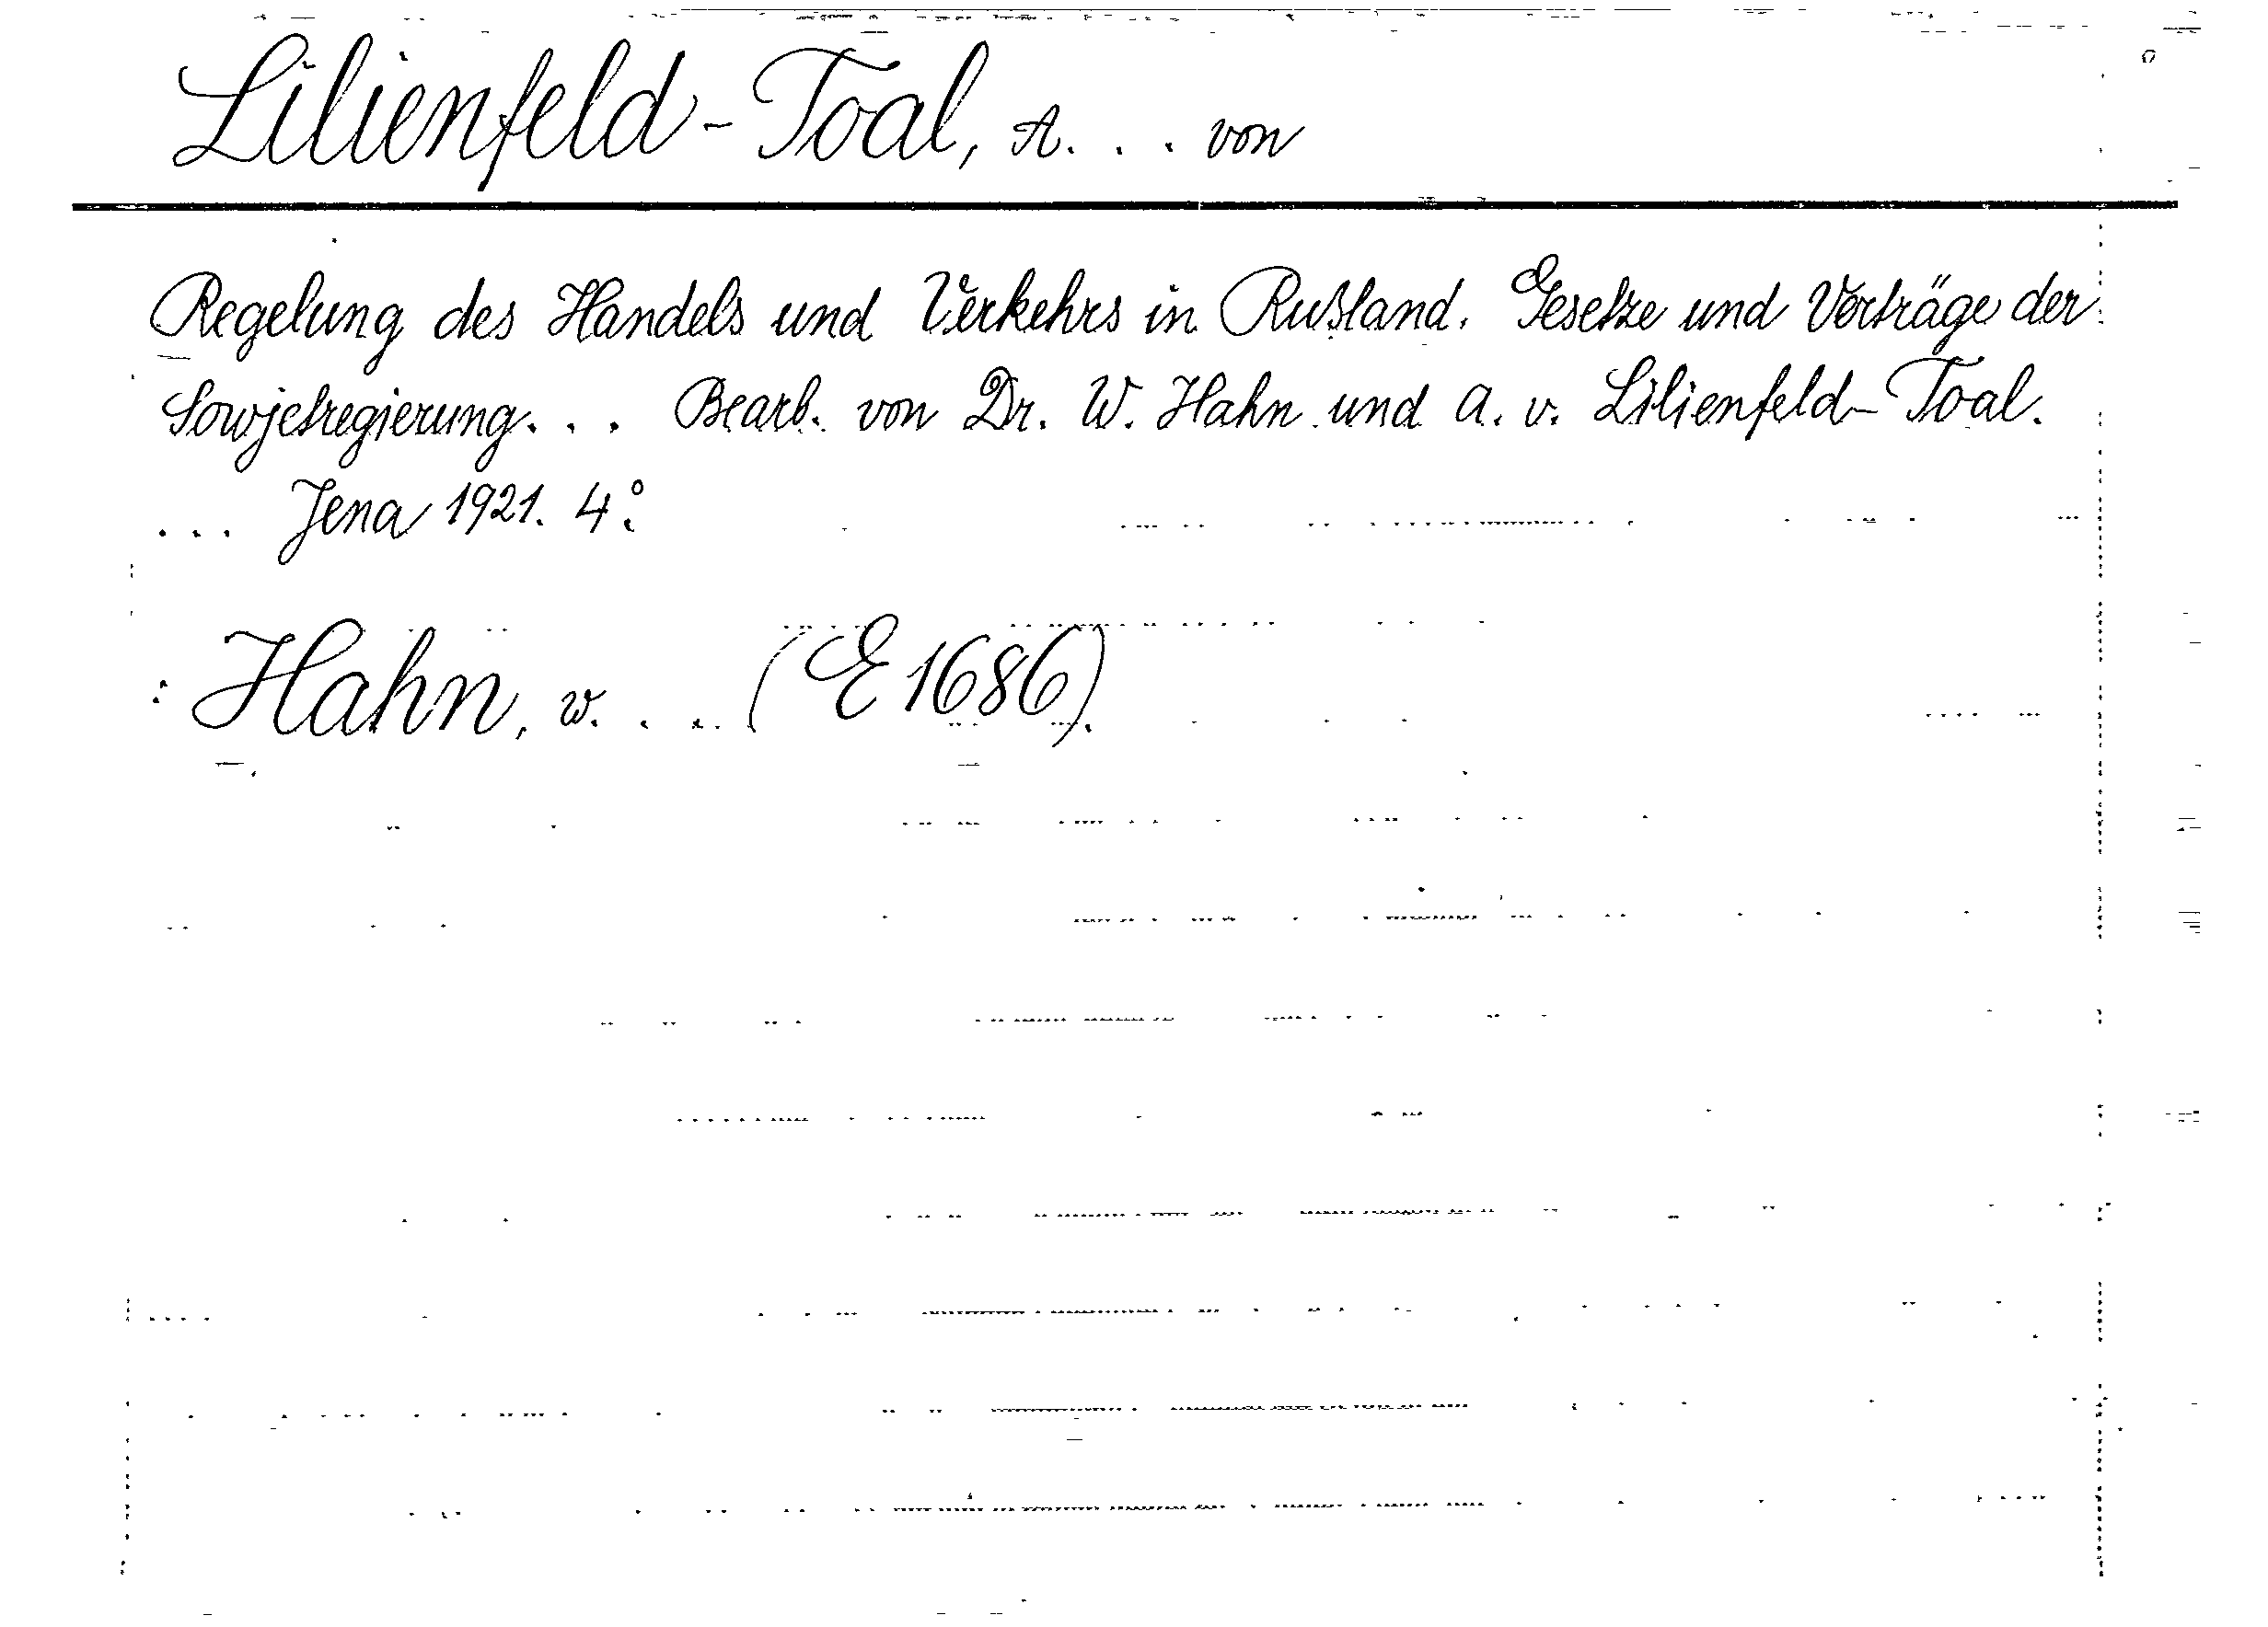 Lilienfeld-Toal, A. . . von
Regelung des Handels und Verkehrs in Rußland. Gesetze und Verträge der
Sowjetregierung. . . Bearb. von Dr. W. Hahn und A. v. Lilienfeld-Toal.
. . . Jena 1921. 4°.
: Hahn, W. . . . (E 1686).